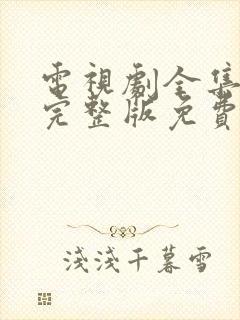 電視劇全集
完整版免費
淺淺千暮雪